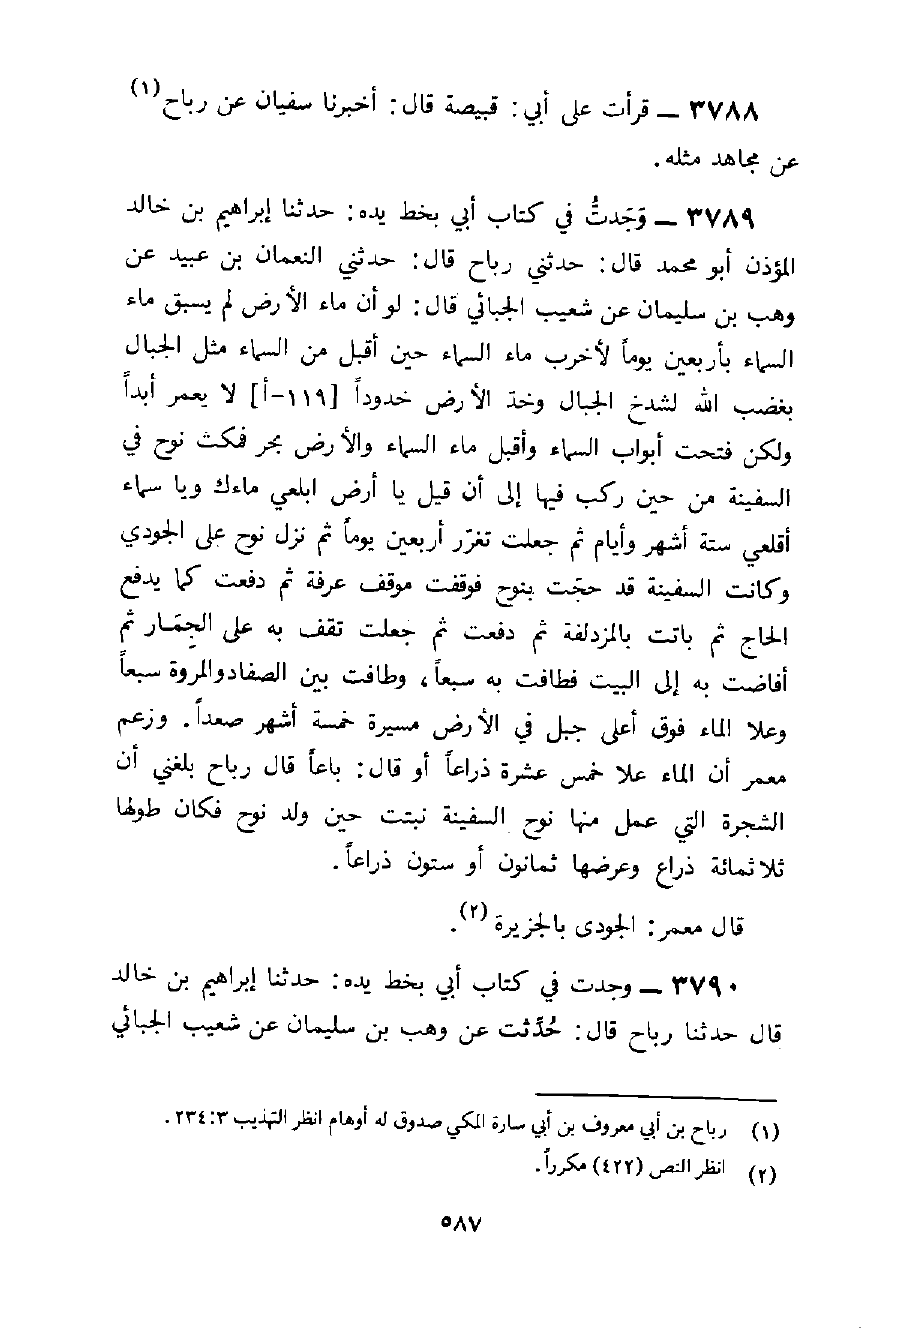 ٣٧٨٨ ــ قرأت على أبي : قبيصة قال : أخبرنا سفيان عن رباح(١)
عن مجاهد مثله .
٣٧٨٩ ــ وَجَدتُّ في كتاب أبي بخط يده : حدثنا إبراهيم بن خالد
المؤذن أبو محمد قال : حدثني رباح قال : حدثني النعمان بن عبيد عن
وهب بن سليمان عن شعيب الجبائي قال : لو أن ماء الأرض لم يسبق ماء
السماء بأربعين يوماً لأخرب ماء السماء حين أقبل من السماء مثل الجبال
بغضب الله لشدخ الجبال وخدَ الأرض خدوداً [١١٩-أ] لا يعمر أبداً
ولكن فتحت أبواب السماء وأقبل ماء السماء والأرض بحر فمكث نوح في
السفينة من حين ركب فيها إلى أن قيل يا أرض ابلعي ماءك ويا سماء
أقلعي ستة أشهر وأيام ثم جعلت تغرّر أربعين يوماً ثم نزل نوح على الجودي
وكانت السفينة قد حجّت بنوح فوقفت موقف عرفة ثم دفعت كما يدفع
الحاج ثم باتت بالمزدلفة ثم دفعت ثم جعلت تقف به على الجِمَار ثم
أفاضت به إلى البيت فطافت به سبعاً ، وطافت بين الصفادوالمروة سبعاً
وعلا الماء فوق أعلى جبل في الأرض مسيرة خمسة أشهر صعداً . وزعم
معمر أن الماء علا خمس عشرة ذراعاً أو قال : باعاً قال رباح بلغني أن
الشجرة التي عمل منها نوح السفينة نبتت حين ولد نوح فكان طولها
ثلاثمائة ذراع وعرضها ثمانون أو ستون ذراعاً .
قال معمر : الجودى بالجزيرة(٢) .
٣٧٩٠ ــ وجدت في كتاب أبي بخط يده : حدثنا إبراهيم بن خالد
قال حدثنا رباح قال : حُدِّثت عن وهب بن سليمان عن شعيب الجبائي
(١) رباح بن أبي معروف بن أبي سارة المكي صدوق له أوهام انظر التهذيب ٣ : ٢٣٤ .
(٢) انظر النص (٤٢٢) مكرراً .
٥٨٧